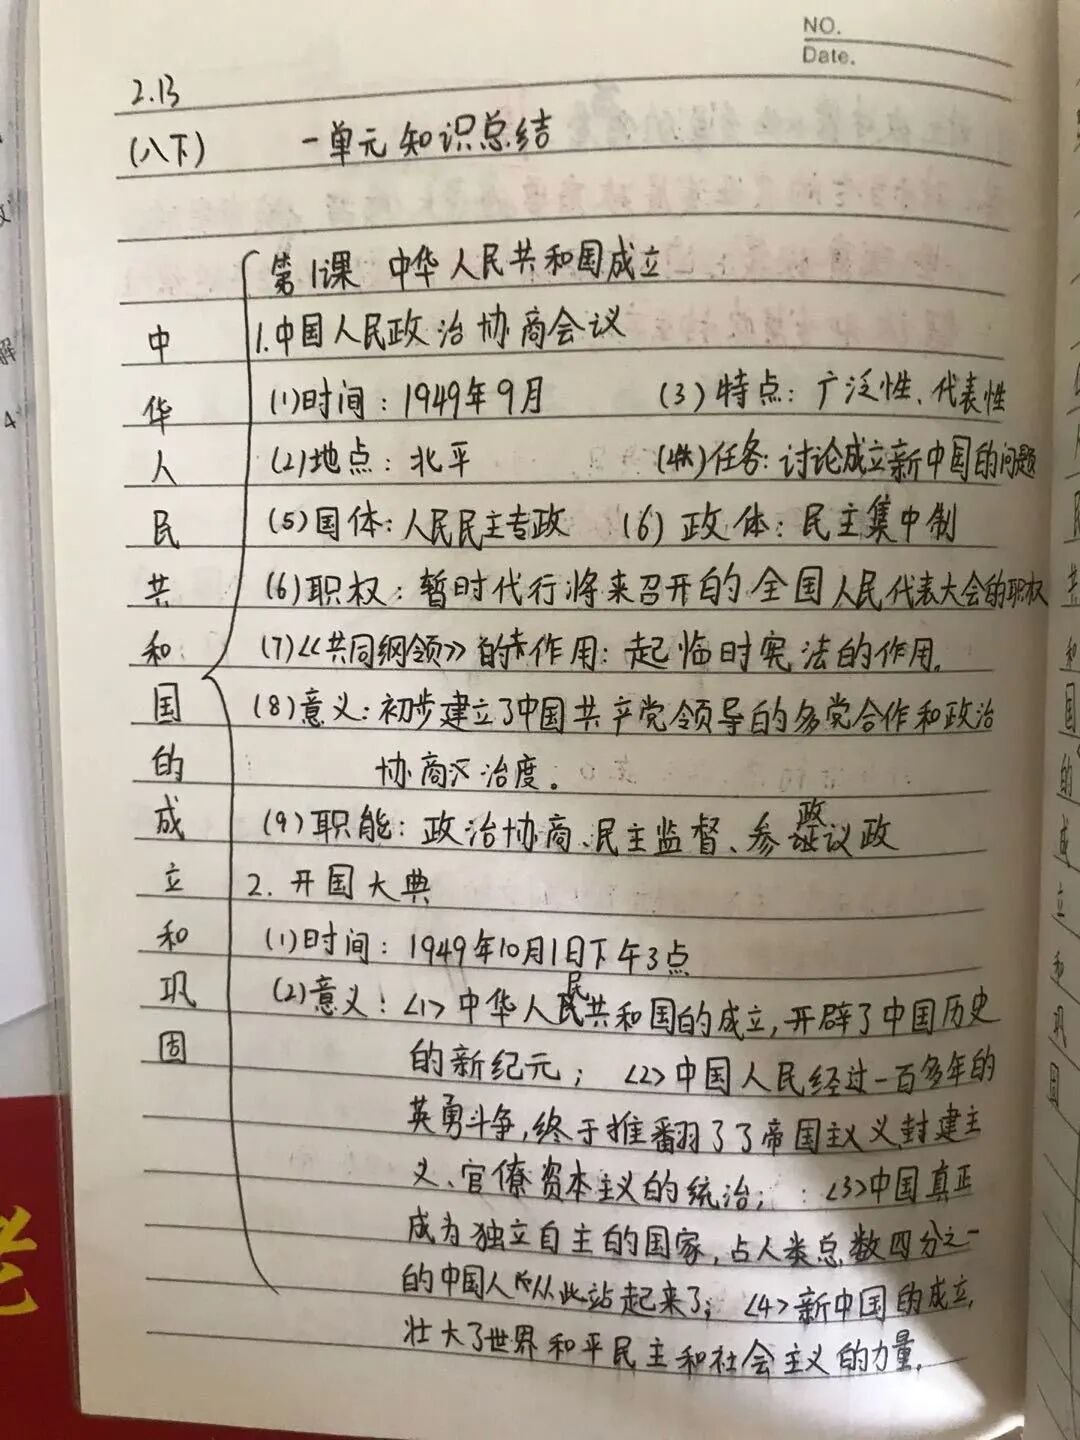 NO.
Date.
2.13
(八下) 一单元知识总结
中华人民共和国的成立和巩固
第1课 中华人民共和国成立
1.中国人民政治协商会议
(1)时间：1949年9月 (3)特点：广泛性、代表性
(2)地点：北平 (4)任务：讨论成立新中国的问题
(5)国体：人民民主专政 (6)政体：民主集中制
(6)职权：暂时代行将来召开的全国人民代表大会的职权
(7)《共同纲领》的作用：起临时宪法的作用。
(8)意义：初步建立了中国共产党领导的多党合作和政治
协商 治度。
(9)职能：政治协商、民主监督、参政议政
2.开国大典
(1)时间：1949年10月1日下午3点
(2)意义：<1>中华人民共和国的成立，开辟了中国历史
的新纪元；<2>中国人民经过一百多年的
英勇斗争，终于推翻了了帝国主义义封建主
义、官僚资本主义的统治；<3>中国真正
成为独立自主的国家，占人类总数四分之一
的中国人 从此站起来了；<4>新中国的成立，
壮大了世界和平民主和社会主义的力量。